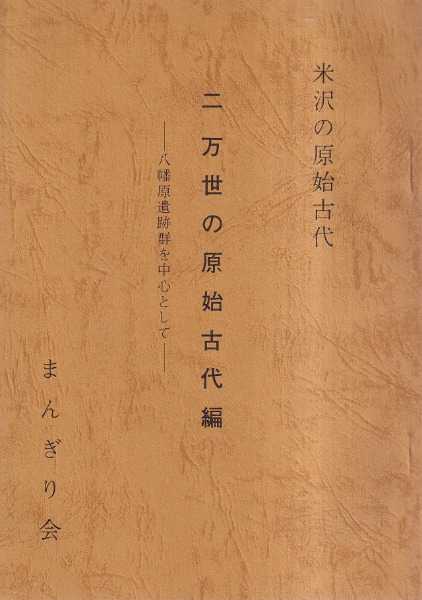 米沢の原始古代
二 万世の原始古代編
―八幡原遺跡群を中心として―
まんぎり会